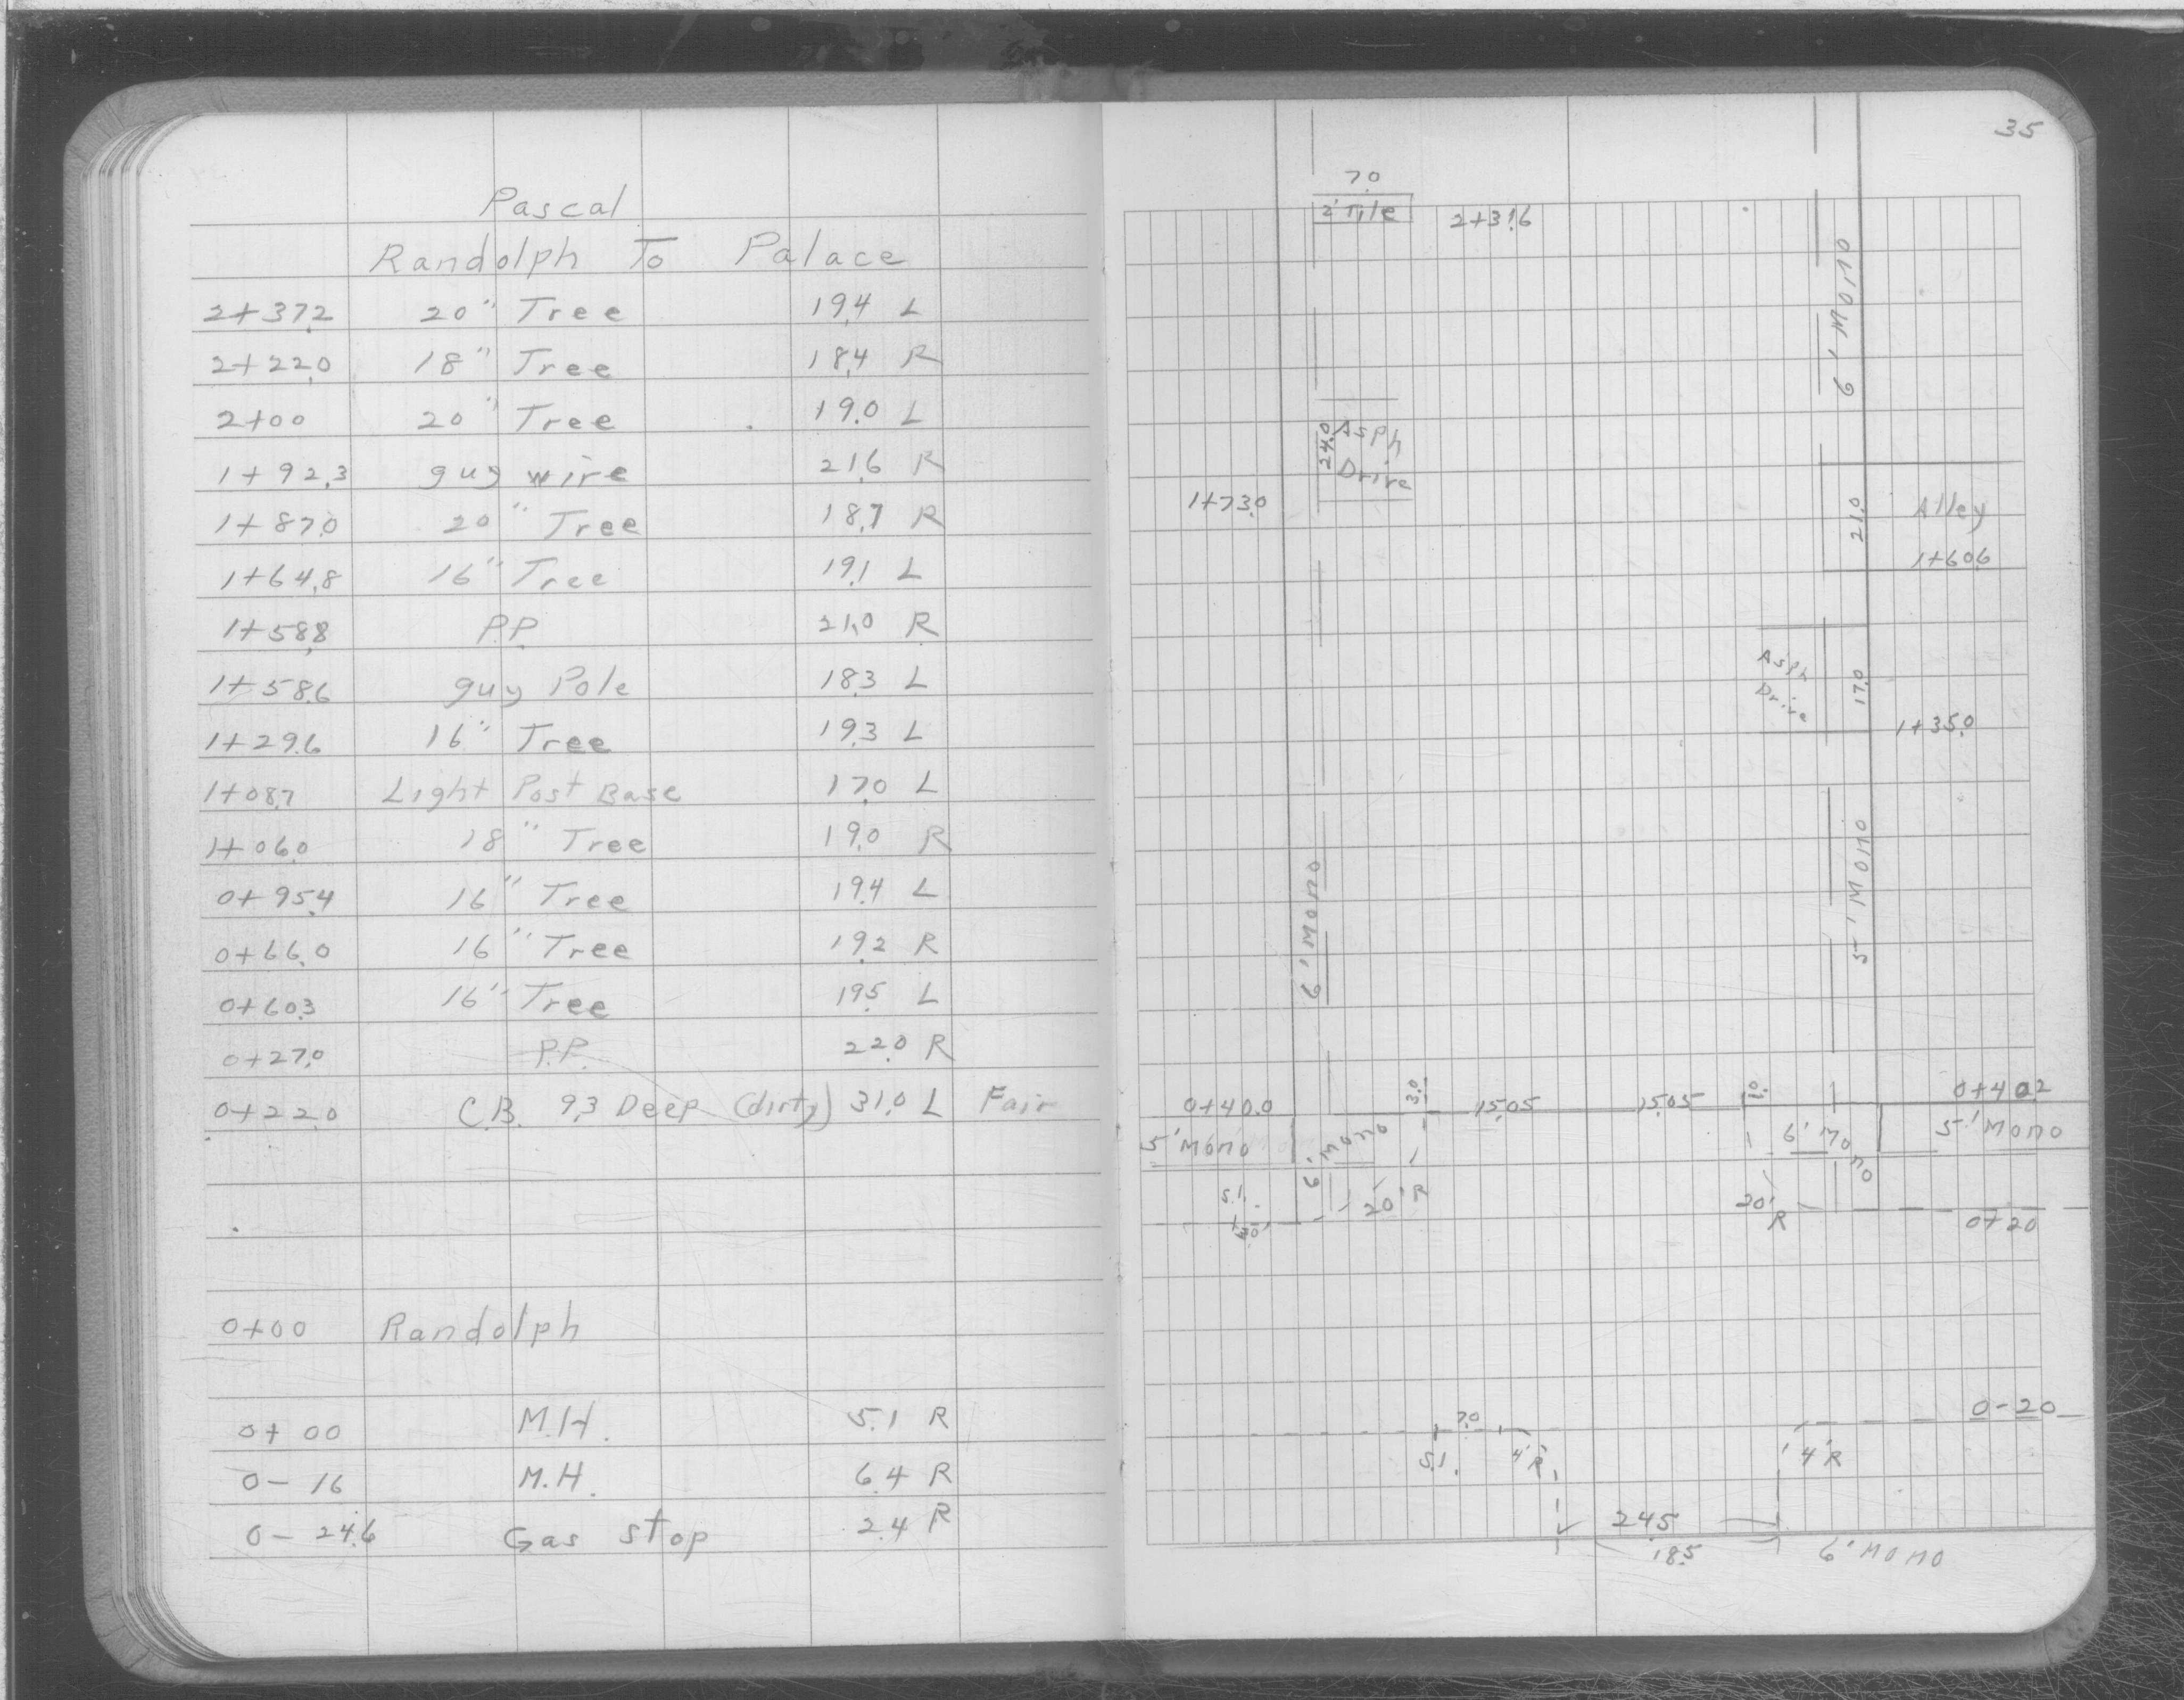 Pascal
Randolph To Palace
2+37.2 20" Tree 19.4 L
2+22.0 18" Tree 18.4 R
2+00 20" Tree 19.0 L
1+92.3 guy wire 21.6 R
1+87.0 20" Tree 18.7 R
1+64.8 16" Tree 19.1 L
1+58.8 P.P. 21.0 R
1+58.6 guy Pole 18.3 L
1+29.6 16" Tree 19.3 L
1+08.7 Light Post Base 17.0 L
1+06.0 18" Tree 19.0 R
0+95.4 16" Tree 19.4 L
0+66.0 16" Tree 19.2 R
0+60.3 16" Tree 19.5 L
0+27.0 P.P. 22.0 R
0+22.0 C.B. 9.3 Deep (dirty) 31.0 L Fair
0+00 Randolph
0+00 M.H. 5.1 R
0-16 M.H. 6.4 R
0-24.6 Gas stop 2.4 R
35
7.0
2' Tile 2+31.6
6' Mono
24.0 Asph
Drive
1+73.0
21.0 Alley
1+60.6
Asph
Drive
17.0
1+35.0
6' Mono
5' Mono
0+40.0 3.0 15.05 15.05 0+40.2
5' Mono 6' Mono 6' Mono 5' Mono
S.I. 20' R 20' R
0+20
0-20
7.0
S.I. 4' R 4' R
24.5
18.5 6' Mono